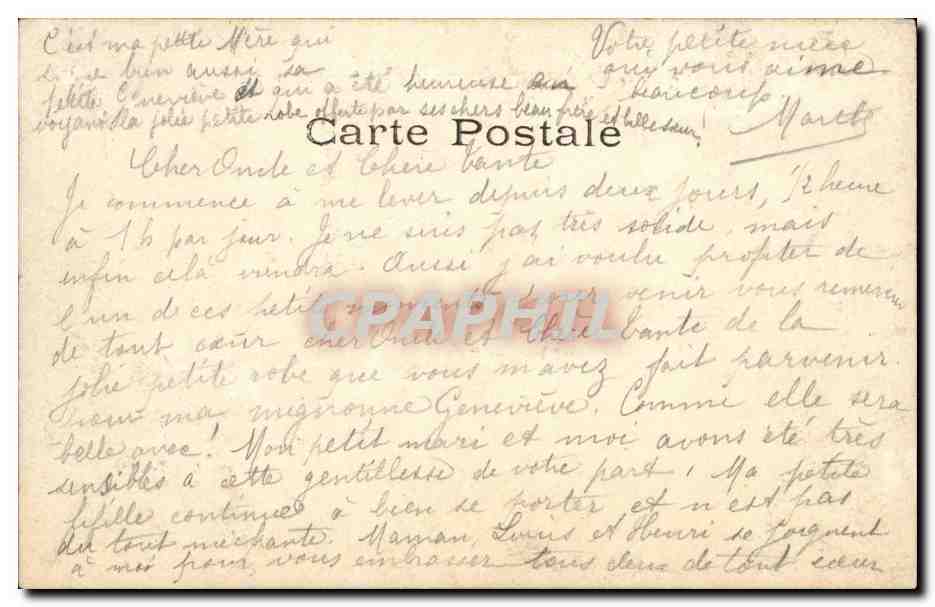 C'est ma petite Mère qui
bien aussi sa
petite Geneviève et qui a été heureuse en
voyant la jolie petite robe offerte par ses chers beau frère et belle sœur!
Votre petite nièce
qui vous aime
beaucoup
Marthe
Carte Postale
Cher Oncle et Chère Tante
Je commence à me lever depuis deux jours, 1/2 heure
à 1h par jour. Je ne suis pas très solide, mais
enfin cela viendra. Aussi j'ai voulu profiter de
l'un de ces petits moments pour venir vous remercier
de tout cœur cher Oncle et Chère Tante de la
jolie petite robe que vous m'avez fait parvenir
pour ma mignonne Geneviève. Comme elle sera
belle avec! Mon petit mari et moi avons été très
sensibles à cette gentillesse de votre part, Ma petite
fifille continue à bien se porter et n'est pas
du tout méchante. Maman, Louis et Henri se joignent
à moi pour vous embrasser tous deux de tout cœur
CPAPHIL